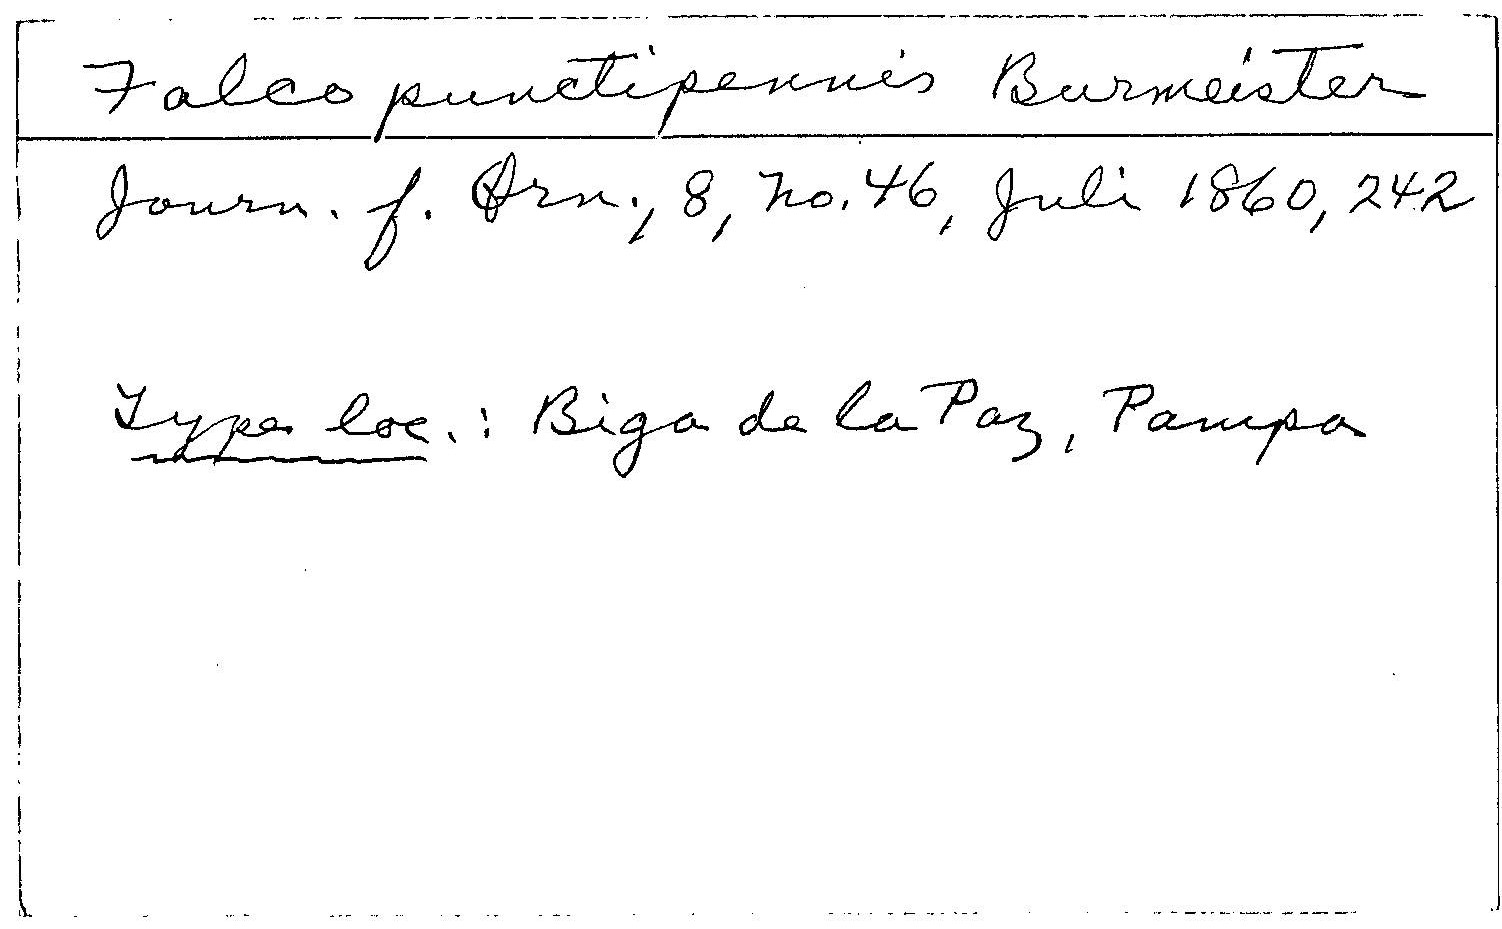 Falco punctipennis Burmeister
Journ. f. Orn., 8, no. 46, Juli 1860, 242
Type loc.: Biga de la Paz, Pampa